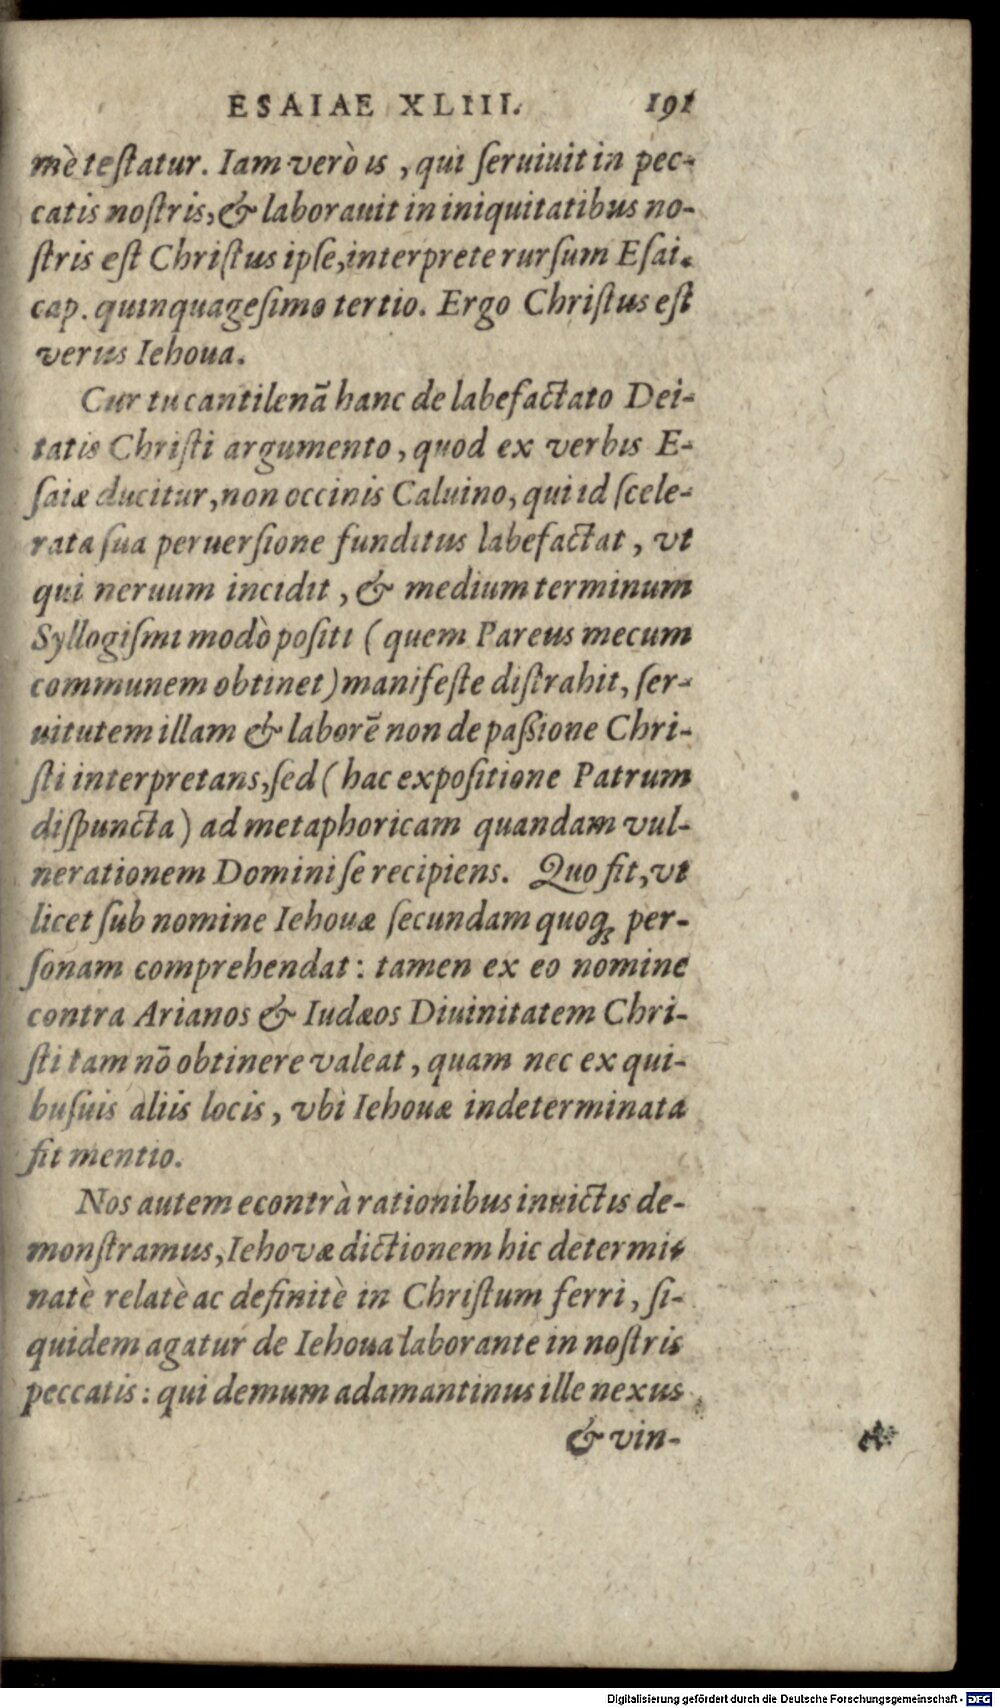 ESAIAE XLIII. 191
mè teſtatur. Iam verò is, qui ſeruiuit in pec-
catis noſtris, & laborauit in iniquitatibus no-
ſtris eſt Chriſtus ipſe, interprete rurſum Eſai.
cap. quinquageſimo tertio. Ergo Chriſtus eſt
verus Iehoua.
Cur tu cantilenã hanc de labefactato Dei-
tatis Chriſti argumento, quod ex verbis E-
ſaiæ ducitur, non occinis Caluino, qui id ſcele-
rata ſua peruerſione funditus labefactat, vt
qui neruum incidit, & medium terminum
Syllogiſmi modò poſiti (quem Pareus mecum
communem obtinet) manifeſte diſtrahit, ſer-
uitutem illam & laborẽ non de paſsione Chri-
ſti interpretans, ſed (hac expoſitione Patrum
diſpuncta) ad metaphoricam quandam vul-
nerationem Domini ſe recipiens. Quo fit, vt
licet ſub nomine Iehouæ ſecundam quoq; per-
ſonam comprehendat: tamen ex eo nomine
contra Arianos & Iudæos Diuinitatem Chri-
ſti tam nõ obtinere valeat, quam nec ex qui-
buſuis aliis locis, vbi Iehouæ indeterminata
fit mentio.
Nos autem econtrà rationibus inuictis de-
monſtramus, Iehovæ dictionem hic determi-
natè relatè ac definitè in Chriſtum ferri, ſi-
quidem agatur de Iehoua laborante in noſtris
peccatis: qui demum adamantinus ille nexus
& vin-
Digitalisierung gefördert durch die Deutsche Forschungsgemeinschaft - DFG